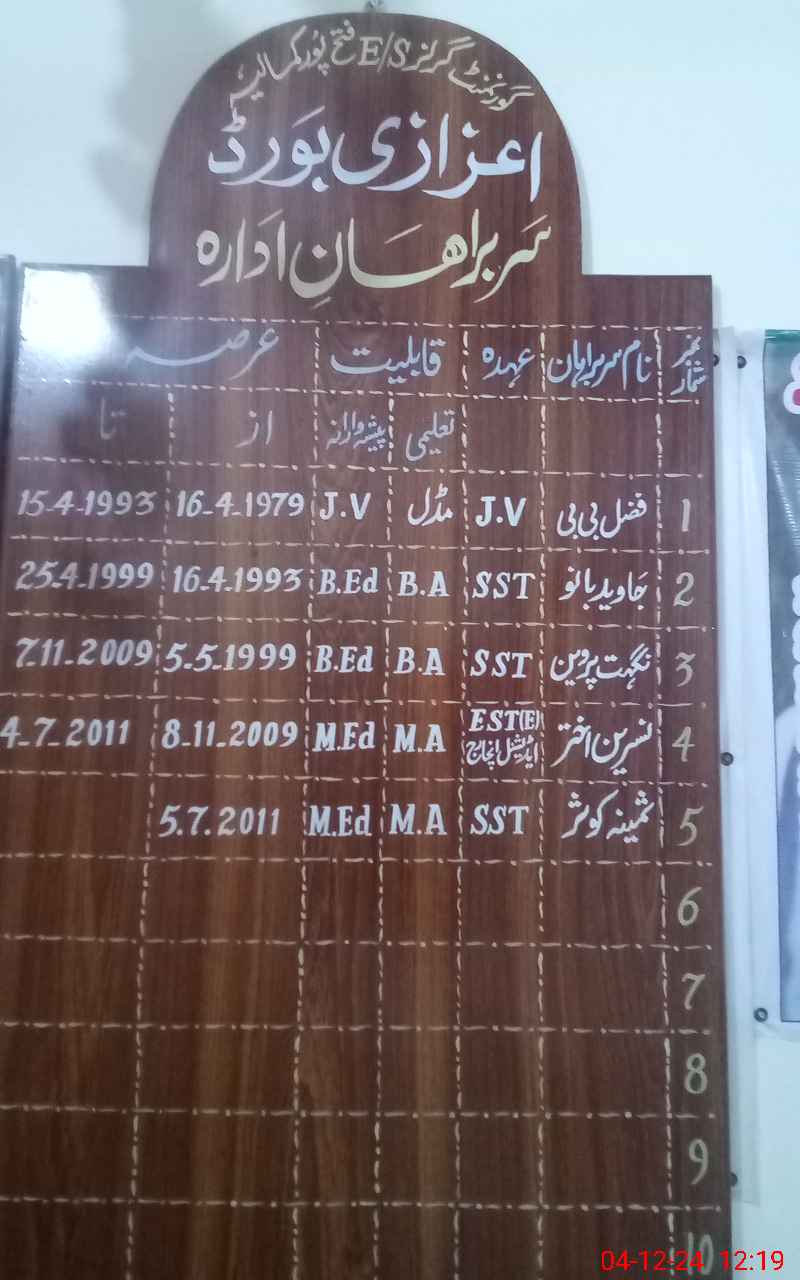 گورنمنٹ گرلز E/S فتح پور کمالیہ
اعزازی بورڈ
سربراھانِ ادارہ
نمبر شمار نام سربراہان عہدہ قابلیت عرصہ
تعلیمی پیشہ وارانہ از تا
1 فضل بی بی J.V مڈل J.V 16-4-1979 15-4-1993
2 جاوید بانو SST B.A B.Ed 16-4-1993 25-4-1999
3 نگہت پروین SST B.A B.Ed 5-5-1999 7-11-2009
4 نسرین اختر EST(E) ایڈیشنل انچارج M.A M.Ed 8-11-2009 4-7-2011
5 ثمینہ کوثر SST M.A M.Ed 5.7.2011
6
7
8
9
10
04-12-24 12:19